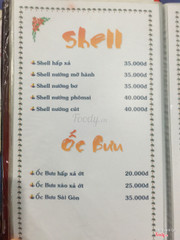 Shell
Shell hấp xả 35.000đ
Shell nướng mở hành 35.000đ
Shell nướng bơ 35.000đ
Shell nướng phômai 40.000đ
Shell nướng cát 40.000đ
Foody.vn
Ốc Bưu
Ốc Bưu hấp xả ớt 20.000đ
Ốc Bưu xào xả ớt 25.000đ
Ốc Bưu Sài Gòn 35.000đ